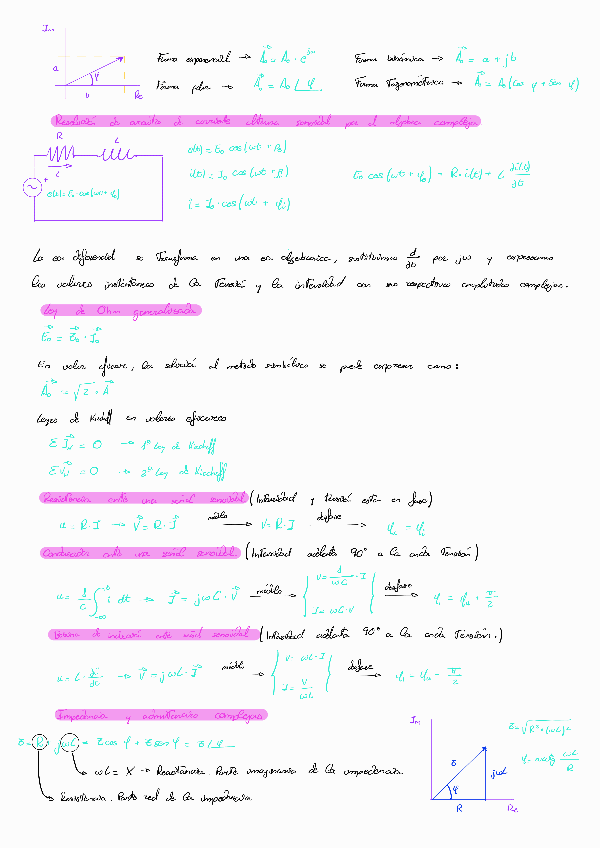 Im
a
φ
b
Re
Forma exponencial → A₀ = A₀ · e^jφ
Forma binómica → A₀ = a + jb
Forma polar → A₀ = A₀ /φ
Forma Trigonométrica → A₀ = A₀(cos φ + sen φ)
Resolución de circuitos de corriente alterna senoidal por el álgebra compleja
R
L
i
e(t) = E₀ cos(ωt + φ₀)
i(t) = I₀ cos(ωt + φ)
i = I₀ · cos(ωt + φi)
E₀ cos(ωt + φ₀) = R · i(t) + L · di(t)/dt
La ec diferencial se Transforma en una ec algebraica, sustituimos d/dt por jω y expresamos
los valores instantáneos de la Tensión y la intensidad con sus respectivas amplitudes complejas.
Ley de Ohm generalizada
E₀ = Z₀ · I₀
En valor eficaz, la solución al método simbólico se puede expresar como:
A₀ = √2 · A
Leyes de Kirchoff en valores eficaces
Σ Iₖ = 0 → 1ª Ley de Kirchoff
Σ Vₖ = 0 → 2ª Ley de Kirchoff
Resistencia ante una señal senoidal (Intensidad y tensión están en fase)
u = R · I → V = R · I módulo → V = R · I desfase → φu = φi
Condensador ante una señal senoidal (Intensidad adelanta 90° a la onda Tensión)
u = 1/C ∫ i dt → I = jωC · V módulo → V = 1/ωC · I desfase → φi = φu + π/2
I = ωC · V
Bobina de inducción ante señal senoidal (Intensidad adelanta 90° a la onda Tensión.)
u = L · di/dt → V = jωL · I módulo → V = ωL · I desfase → φi = φu - π/2
I = V/ωL
Impedancia y admitancias complejas
Z = R + jωL = Z cos φ + Z sen φ = Z /φ
ωL = X → Reactancia. Parte imaginaria de la impedancia.
Resistencia. Parte real de la impedancia.
Im
Z
φ
jωL
R
Re
Z = √R² + (ωL)²
φ = arctg ωL/R